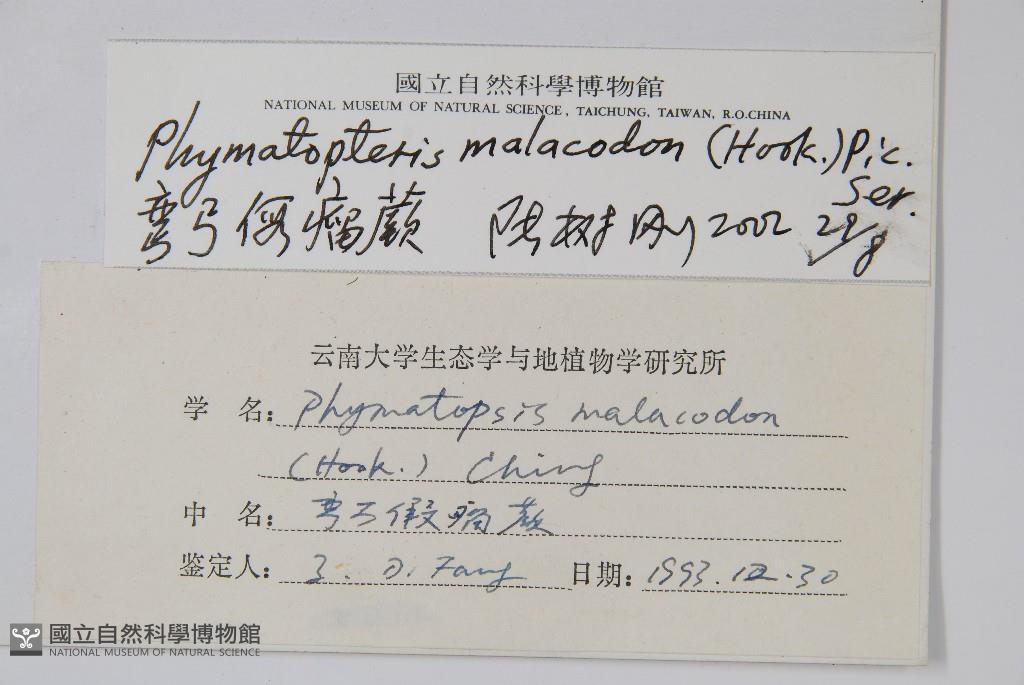 國立自然科學博物館
NATIONAL MUSEUM OF NATURAL SCIENCE, TAICHUNG, TAIWAN, R.O.CHINA
Phymatopteris malacodon (Hook.) Pic. Ser.
弯弓假瘤蕨 陆树刚 2002 29/8
云南大学生态学与地植物学研究所
学 名: Phymatopsis malacodon
(Hook.) Ching
中 名: 弯弓假瘤蕨
鉴定人: Z. D. Fang 日期: 1993.12.30
國立自然科學博物館
NATIONAL MUSEUM OF NATURAL SCIENCE